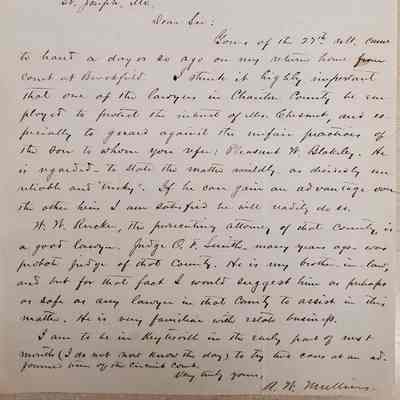 St. Joseph, Mo.
Dear Sir:
Yours of the 27th ult. came
to hand a day or so ago on my return home from
court at Brookfield. I think it highly important
that one of the lawyers in Chariton County be em-
ployed to protect the interest of Mrs. Chesnut, and es-
pecially to guard against the unfair practices of
the son to whom you refer: Pleasant W. Blakeley. He
is regarded - to state the matter mildly as decidedly un-
reliable and "tricky". If he can gain an advantage over
the other heirs I am satisfied he will readily do so.
W. W. Rucker, the prosecuting attorney of that county, is
a good lawyer. Judge O. F. Smith many years ago was
probate judge of that County. He is my brother-in-law,
and but for that fact I would suggest him as perhaps
as safe as any lawyer in that County to assist in this
matter. He is very familiar with estate business.
I am to be in Keytesville in the early part of next
month (I do not now know the day) to try two cases at an ad-
journed term of the Circuit Court.
Very truly yours,
A. W. Mullins